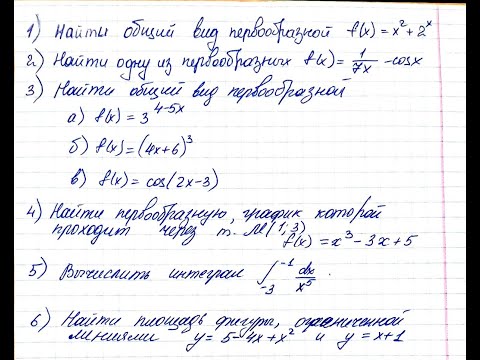 1) Найти общий вид первообразной f(x) = x² + 2ˣ
2) Найти одну из первообразных f(x) = 1/7x - cosx
3) Найти общий вид первообразной
а) f(x) = 3⁴⁻⁵ˣ
б) f(x) = (4x+6)³
в) f(x) = cos(2x-3)
4) Найти первообразную, график которой
проходит через т. M(1;3)
f(x) = x³ - 3x + 5
5) Вычислить интеграл ∫₋₃⁻¹ dx/x⁵.
6) Найти площадь фигуры, ограниченной
линиями y = 5 - 4x + x² и y = x + 1